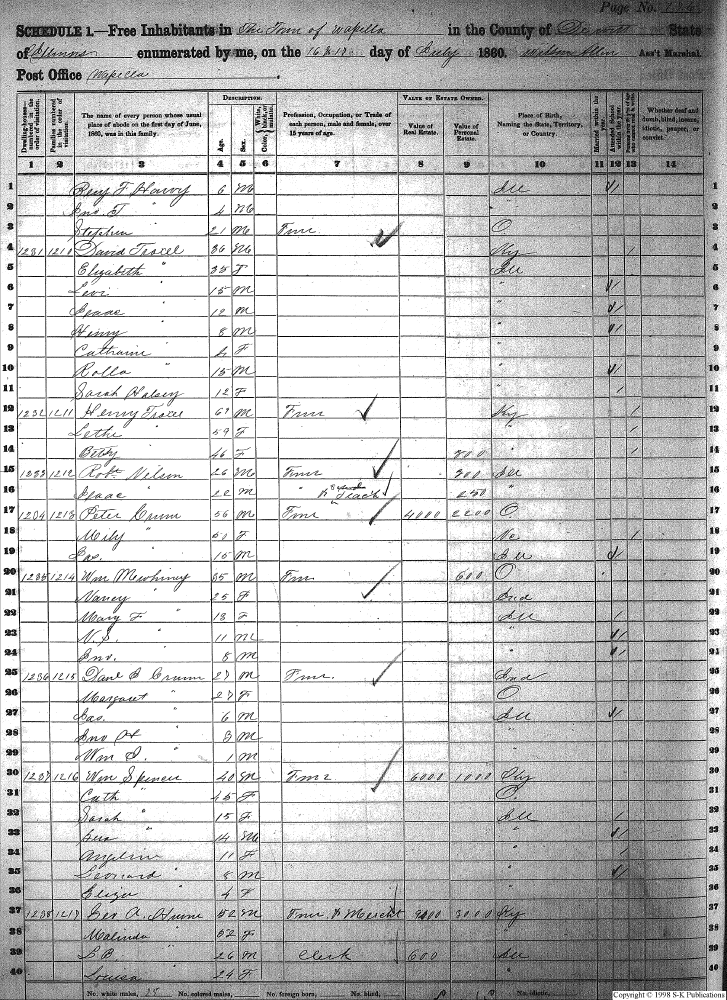 Page No.
SCHEDULE 1.—Free Inhabitants in The Town of Wapella in the County of De Witt State
of Illinois enumerated by me, on the 16 & 17 day of July 1860. Wilson Allen Ass't Marshal.
Post Office Wapella.
Dwelling-houses—numbered in the order of visitation.
Families numbered in the order of visitation.
The name of every person whose usual place of abode on the first day of June, 1860, was in this family.
DESCRIPTION.
Age.
Sex.
Color, White, black, or mulatto.
Profession, Occupation, or Trade of each person, male and female, over 15 years of age.
VALUE OF ESTATE OWNED.
Value of Real Estate.
Value of Personal Estate.
Place of Birth, Naming the State, Territory, or Country.
Married within the year.
Attended School within the year.
Whether deaf and dumb, blind, insane, idiotic, pauper, or convict.
1 2 3 4 5 6 7 8 9 10 11 12 13 14
1 Benj F Harvy 6 M Ill / 1
2 Jno. T " 4 M " 2
3 Stephen " 21 M Fmr O 3
4 1231 1210 David Troxel 36 M Ky / 4
5 Elizabeth " 35 F Ill 5
6 Levi " 15 M " / 6
7 Isaac " 12 M " / 7
8 Henry " 8 M " / 8
9 Catharine " F " 9
10 Rolla " 15 M " / 10
11 Sarah Halsey 12 F " / 11
12 1232 1211 Henry Troxel 67 M Fmr Ky / 12
13 Letha " 59 F " / 13
14 Betsy " 46 F 200 " / 14
15 1233 1212 Robt. Nelson 26 M Fmr 300 Ill 15
16 Isaac " 22 M " & School Teach 250 " 16
17 1234 1213 Peter Crum 56 M Fmr 4000 2200 O 17
18 Mily " 50 F Va / 18
19 Jas. " 15 M Ill / 19
20 1235 1214 Wm Mewhiney 35 M Fmr 600 O 20
21 Nancy " 25 F Ind 21
22 Mary F " 13 F Ill / 22
23 N. S. " 11 M " / 23
24 Jno. " 8 M " / 24
25 1236 1215 Danl B Crum 27 M Fmr. Ind 25
26 Margaret " 27 F O 26
27 Jas. " 6 M Ill / 27
28 Jno H " 3 M " 28
29 Wm S. " 1 M " 29
30 1237 1216 Wm Spencer 40 M Fmr 6000 1000 Ky 30
31 Cath " 45 F O. 31
32 Sarah " 15 F Ill / 32
33 " 14 M " / 33
34 Angeline " 11 F " / 34
35 Leonard " 8 M " / 35
36 Eliza " 4 F " 36
37 1238 1217 Geo A. Hume 52 M Fmr & Mercht 3000 Ky 37
38 Malinda " 52 F " 38
39 " 26 M Clerk 600 Ill 39
40 Louisa " 24 F " 40
No. white males, 27 No. colored males, No. foreign born, No. blind, No. idiotic,
Copyright © 1998 S-K Publications